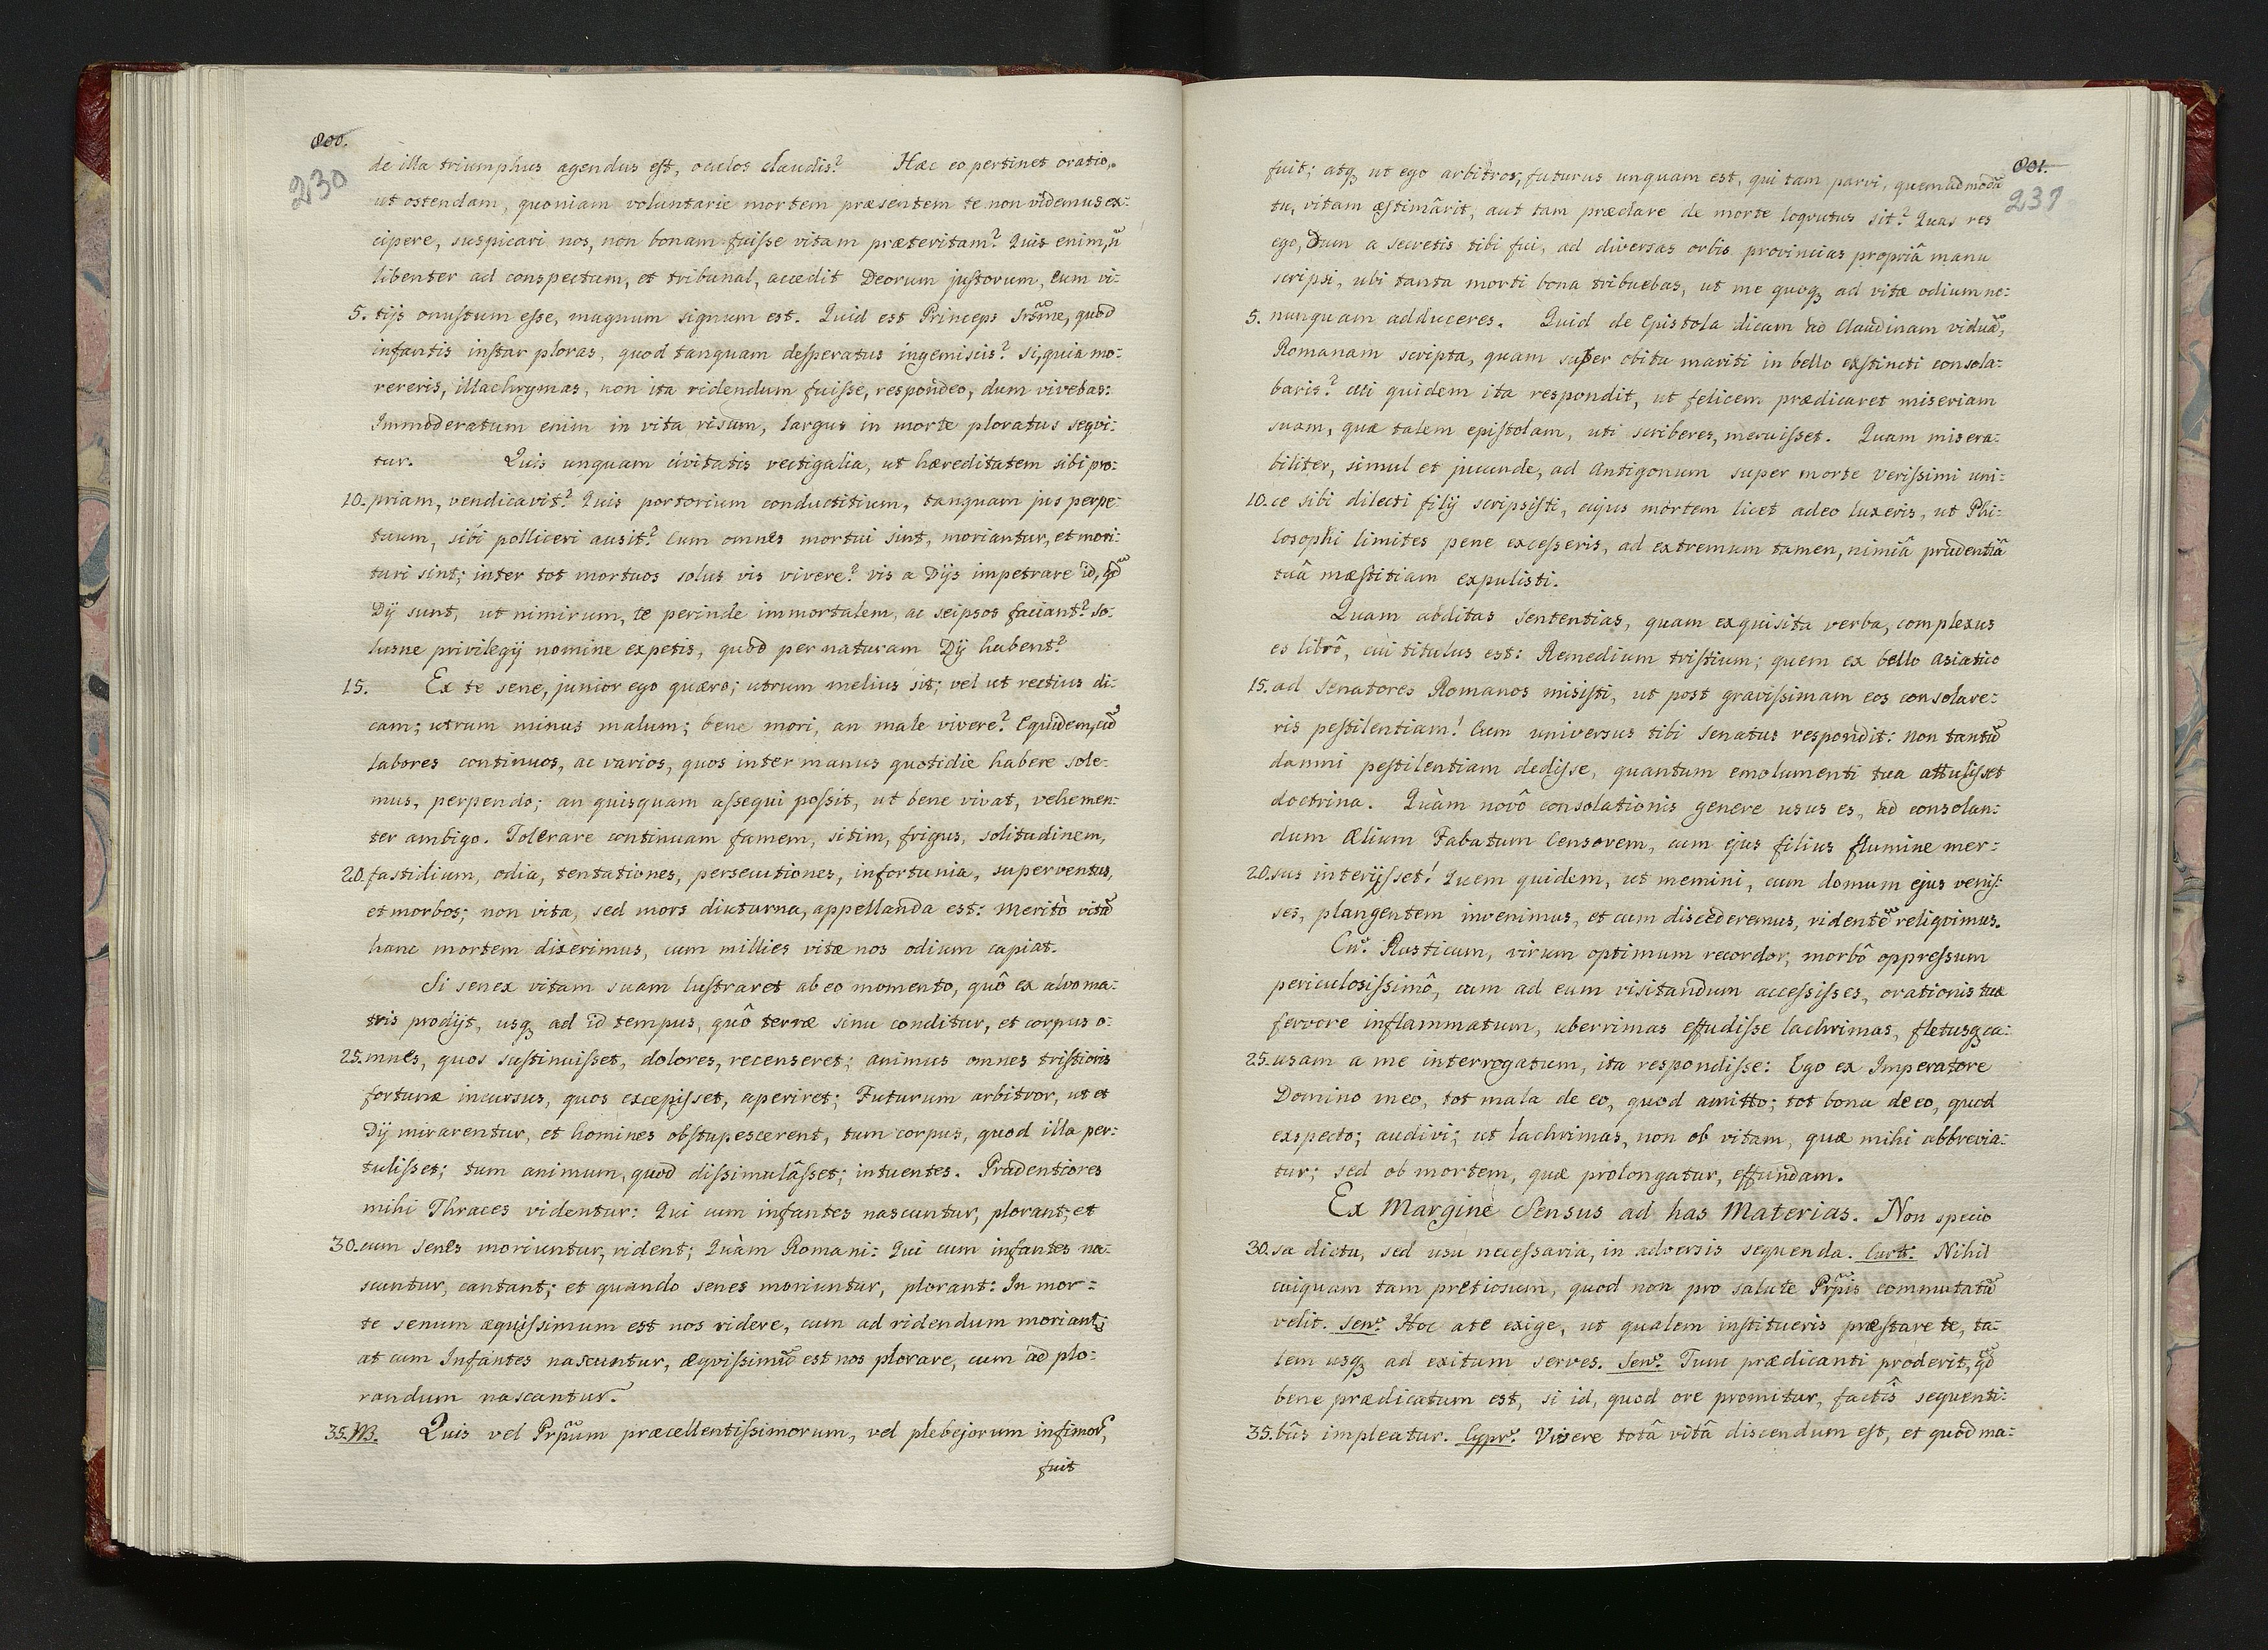 800.
230
de illa triumphus agendus est, oculos claudis? Hæc eo pertinet oratio,
ut ostendam, quoniam voluntarie mortem præsentem te non videmus ex:
cipere, suspicari nos, non bonam fuisse vitam præteritam? Quis enim, ñ
libenter ad conspectum, et tribunal, accedit Deorum justorum, eum vi:
5. tijs onustum esse, magnum signum est. Quid est Princeps Srs̃me, quod
infantis instar ploras, quod tanquam desperatus ingemiscis? si, quia mo:
rereris, illachrymas, non ita ridendum fuisse, respondeo, dum vivebas:
Immoderatum enim in vita risum, largus in morte ploratus seqvi:
tur. Quis unquam civitatis vectigalia, ut hæreditatem sibi pro:
10. priam, vendicavit? Quis portorium conductitium, tanquam jus perpe:
tuum, sibi polliceri ausit? Cum omnes mortui sint, moriantur, et mori:
turi sint; inter tot mortuos solus vis vivere? vis a Dijs impetrare id, qd̃
Dij sunt, ut nimirum, te perinde immortalem, ac seipsos faciant? so:
lusne privilegij nomine expetis, quod per naturam Dij habent?
15. Ex te sene, junior ego quæro; utrum melius sit; vel ut rectius di:
cam; utrum minus malum; bene mori, an male vivere? Equidem, cũ
labores continuos, ac varios, quos inter manus quotidie habere sole:
mus, perpendo; an quisquam assequi possit, ut bene vivat, vehemen:
ter ambigo. Tolerare continuam famem, sitim, frigus, solitudinem,
20. fastidium, odia, tentationes, persecutiones, infortunia, superventus,
et morbos; non vita, sed mors diuturna, appellanda est: Meritò vitã
hanc mortem dixerimus, cum millies vitæ nos odium capiat.
Si senex vitam suam lustraret ab eo momento, quô ex alvo ma:
tris prodijt, usq3 ad id tempus, quô terræ sinu conditur, et corpus o:
25. mnes, quos sustinuisset, dolores, recenseret; animus omnes tristioris
fortunæ incursus, quos excepisset, aperiret; Futurum arbitror, ut et
Dij mirarentur, et homines obstupescerent, tum corpus, quod illa per:
tulisset; tum animum, quod dissimulâsset; intuentes. Prudentiores
mihi Thraces videntur: Qui cum infantes nascuntur, plorant; et
30. cum senes moriuntur, rident; Quàm Romani: Qui cum infantes na:
scuntur, cantant; et quando senes moriuntur, plorant: In mor:
te senum æquissimum est nos ridere, cum ad ridendum moriant;
at cum Infantes nascuntur, æqvissimũ est nos plorare, cum ad plo:
randum nascantur.
35. M3. Quis vel Prp̃um præcellentissimorum, vel plebejorum infimor,
fuit
801.
231
fuit; atq3 ut ego arbitror, futurus unquam est, qui tam parvi, quemadmodũ
tu, vitam æstimârit, aut tam præclare de morte loqvutus sit? Quas res
ego, dum a secretis tibi fui, ad diversas orbis provincias propriâ manu
scripsi, ubi tanta morti bona tribuebas, ut me quoq3 ad vitæ odium no:
5. nunquam adduceres. Quid de Epistola dicam ad Claudinam viduã,
Romanam scripta, quam super obitu mariti in bello exstincti consola:
baris? cui quidem ita respondit, ut felicem prædicaret miseriam
suam, quæ talem epistolam, uti scriberes, meruisset. Quam misera:
biliter, simul et jucunde, ad Antigonum super morte Verissimi uni:
10. ce sibi dilecti filij scripsisti, cujus mortem licet adeo luxeris, ut Phi:
losophi limites pene excesseris, ad extremum tamen, nimiâ prudentiâ
tuâ mæstitiam expulisti.
Quam abditas sententias, quam exquisita verba, complexus
es librô, cui titulus est: Remedium tristium; quem ex bello Asiatico
15. ad Senatores Romanos misisti, ut post gravissimam eos consolare:
ris pestilentiam! Cum universus tibi Senatus respondit: non tantũ
damni pestilentiam dedisse, quantum emolumenti tua attulisset
doctrina. Quàm novô consolationis genere usus es, ad consolan:
dum Ælium Fabatum Censorem, cum ejus filius flumine mer:
20. sus interijsset! Quem quidem, ut memini, cum domum ejus venis:
ses, plangentem invenimus, et cum discederemus, ridentẽ reliqvimus.
Cn̄. Rusticum, virum optimum recordor, morbô oppressum
periculosissimô, cum ad eum visitandum accessisses, orationis tuæ
fervore inflammatum, uberrimas effudisse lachrimas, fletusq3 ca:
25. usam a me interrogatum, ita respondisse: Ego ex Imperatore
Domino meo, tot mala de eo, quod amitto; tot bona de eo, quod
exspecto; audivi; ut lachrimas, non ob vitam, quæ mihi abbrevia:
tur; sed ob mortem, quæ prolongatur, effundam.
Ex Margine Sensus ad has Materias. Non specio
30. sa dictu, sed usu necessaria, in adversis sequenda. Curt: Nihil
cuiquam tam pretiosum, quod non pro salute Prp̃is commutatũ
velit. Sen: Hoc a te exige, ut qualem institueris præstare te, ta:
lem usq3 ad exitum serves. Sen: Tunc prædicanti proderit, qd̃
bene prædicatum est, si id, quod ore promitur, factis sequenti:
35. bus impleatur. Cypr: Vivere totâ vitâ discendum est, et quod ma: